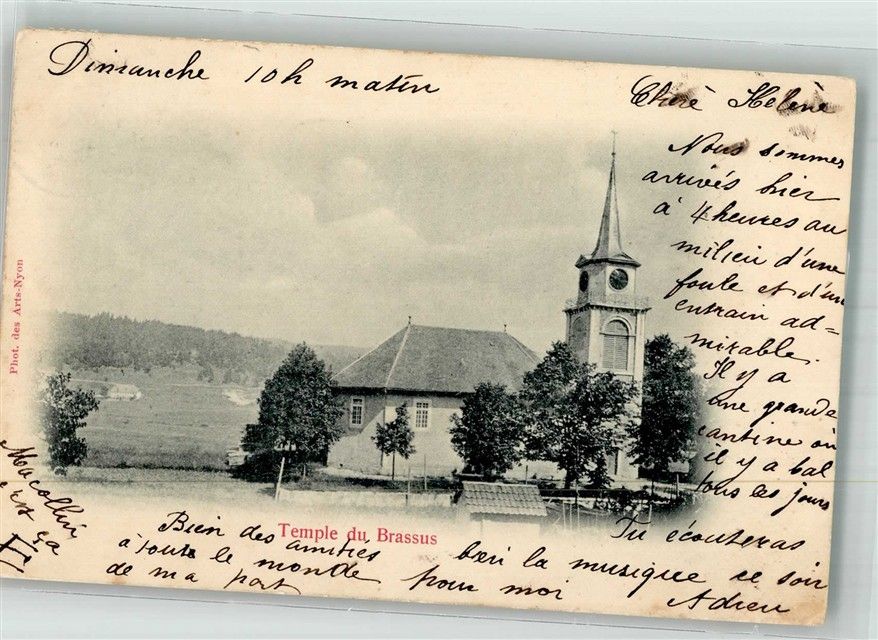 Dimanche 10h matin
Chère Hélène
Nous sommes
arrivés hier
à 4 heures au
milieu d'une
foule et d'un
entrain ad=
mirable.
Il y a
une grande
cantine où
il y a bal
tous les jours
Tu écouteras
bien la musique ce soir
pour moi
Adieu
Bien des amitiés
à toute le monde
de ma part
Macollin
est ça
Temple du Brassus
Phot. des Arts-Nyon